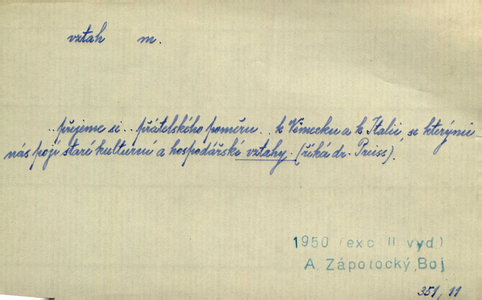 vztah m.
..přejeme si.. přátelského poměru.. k Německu a k Italii, se kterými
nás pojí staré kulturní a hospodářské vztahy. (říká dr. Preiss).
1950 (exc. II. vyd.)
A. Zápotocký, Boj
351, 11